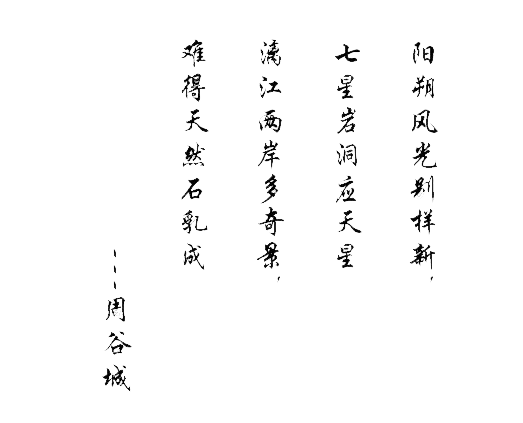 阳朔风光别样新，
七星岩洞应天星
漓江两岸多奇景，
难得天然石乳成
---周谷城